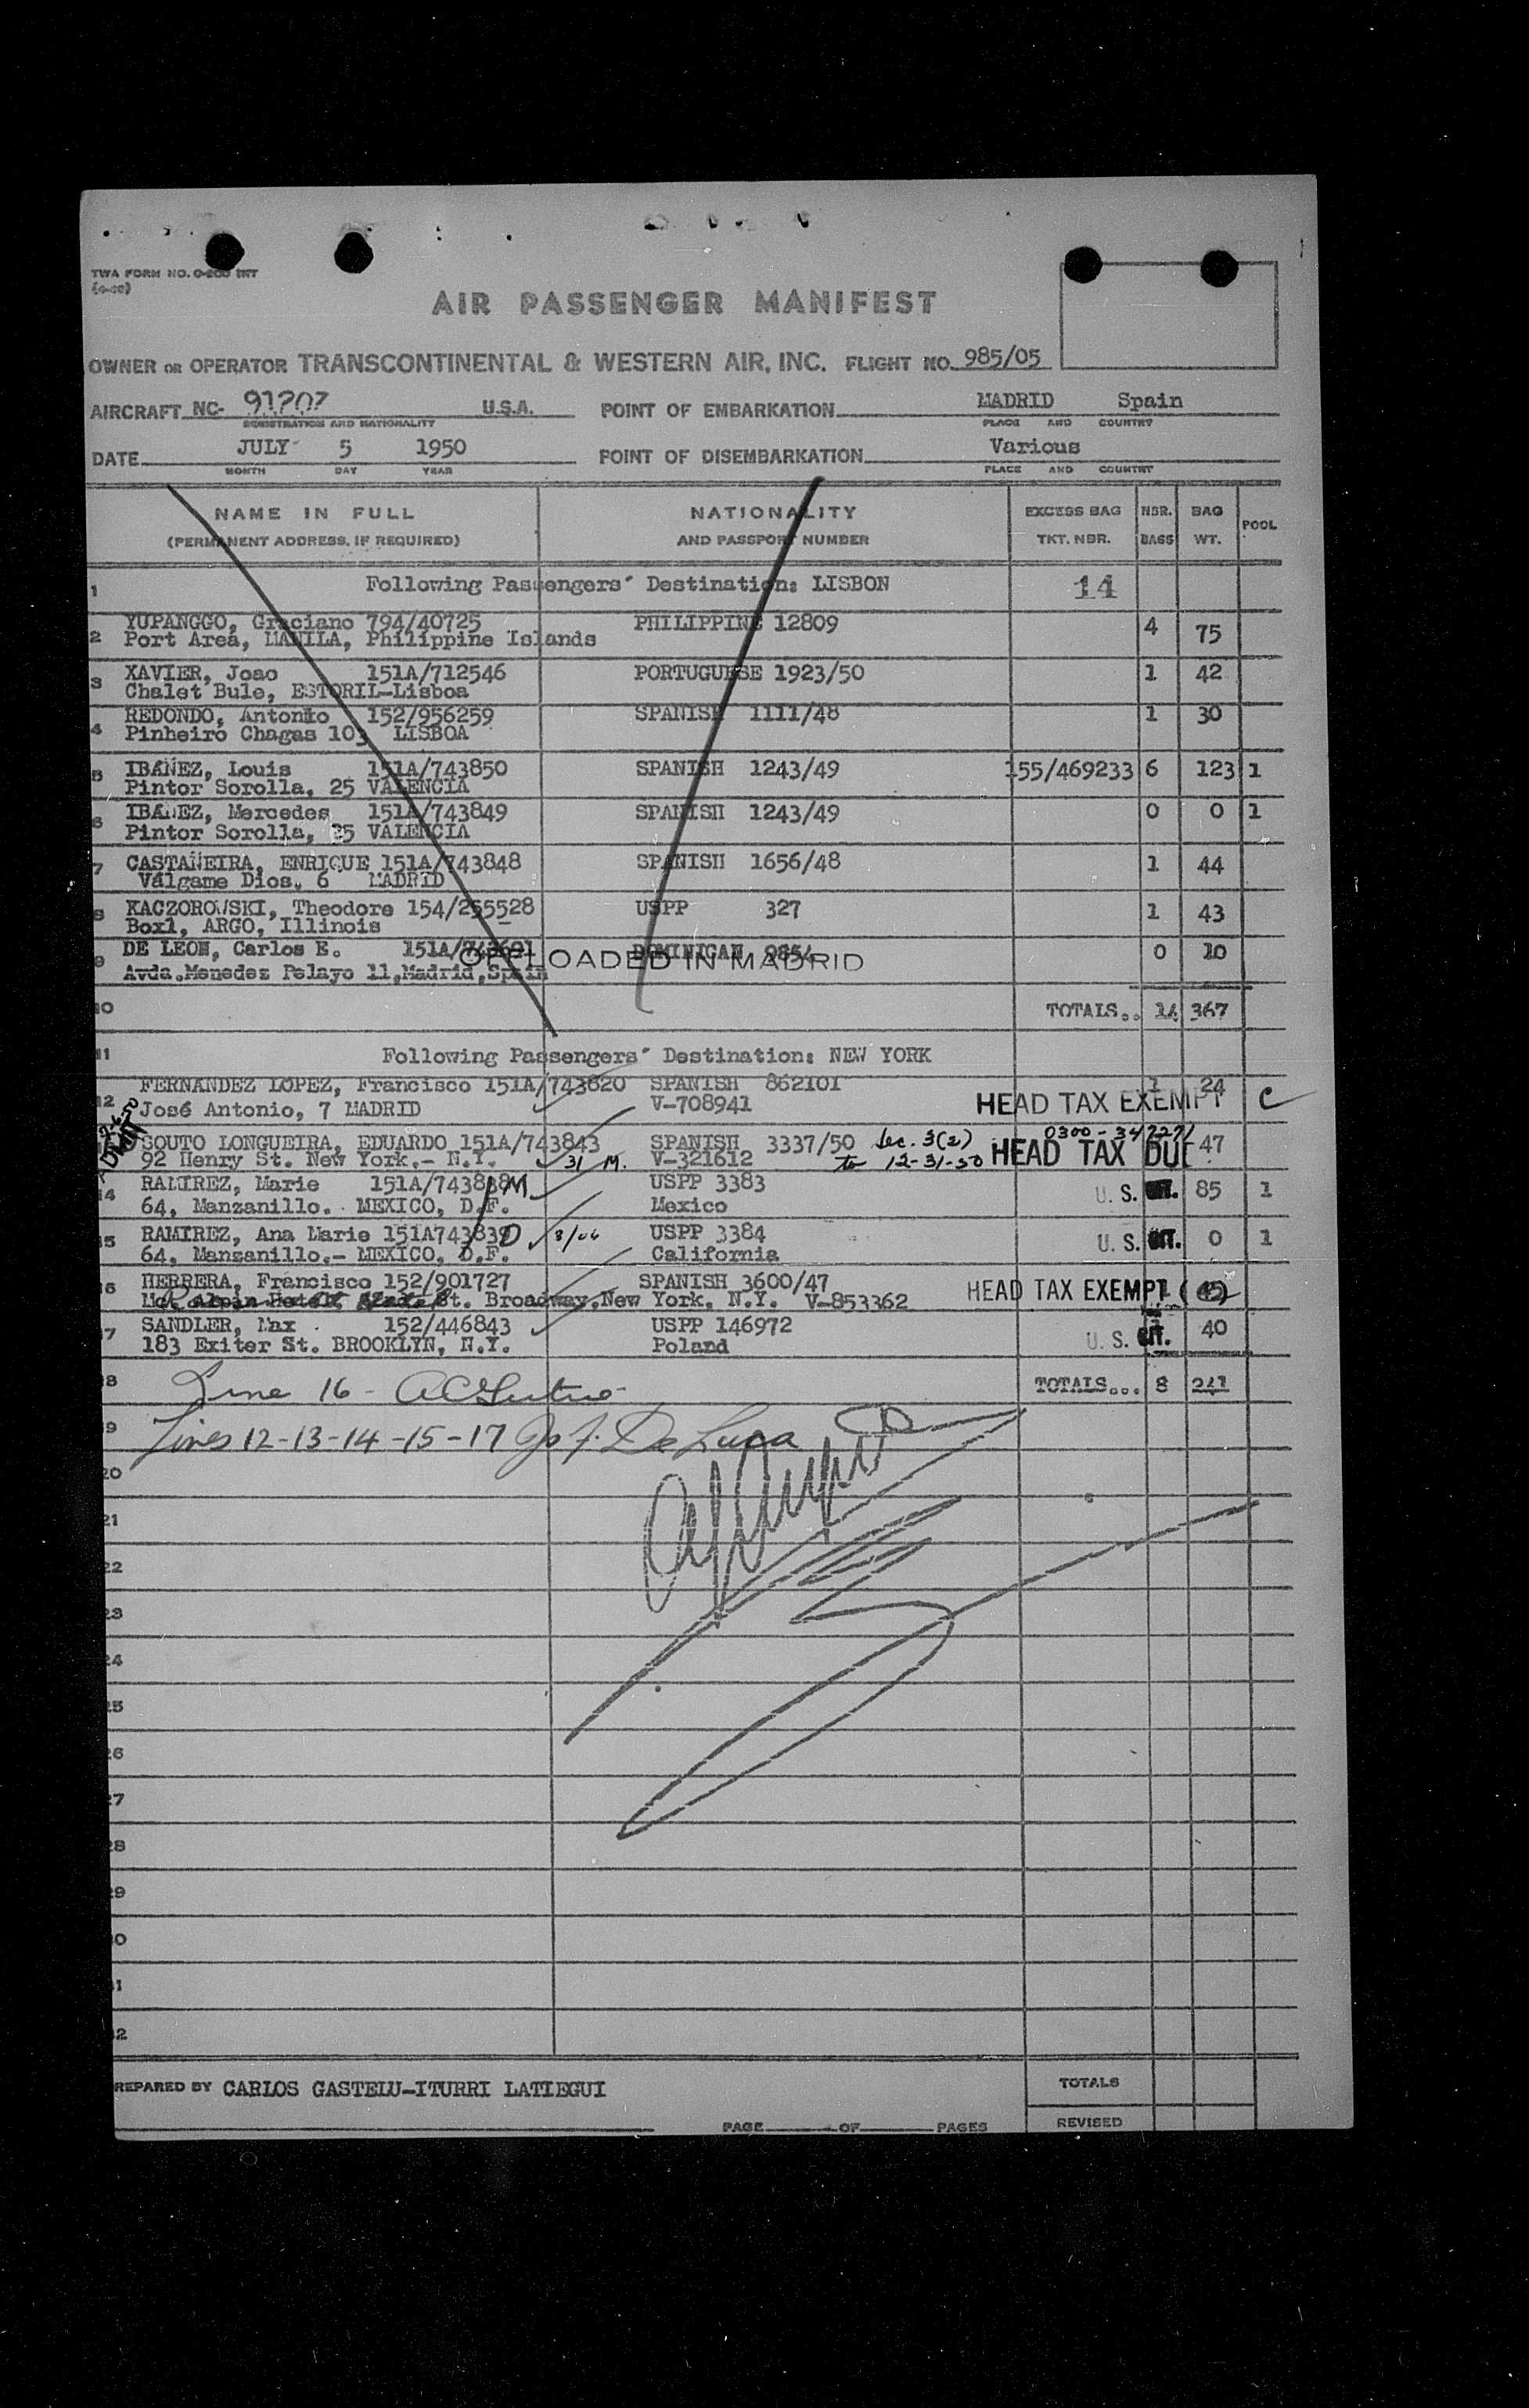 TWA FORM NO. O-200 INT
AIR PASSENGER MANIFEST
OWNER OR OPERATOR TRANSCONTINENTAL & WESTERN AIR, INC. FLIGHT NO. 985/05
AIRCRAFT NC- 91207 U.S.A. POINT OF EMBARKATION MADRID Spain
REGISTRATION AND NATIONALITY PLACE AND COUNTRY
DATE JULY 5 1950 POINT OF DISEMBARKATION Various
MONTH DAY YEAR PLACE AND COUNTRY
NAME IN FULL NATIONALITY EXCESS BAG NBR. BAG POOL
(PERMANENT ADDRESS, IF REQUIRED) AND PASSPORT NUMBER TKT. NBR. BAGS WT.
1 Following Passengers' Destination: LISBON 14
YUPANGGO, Graciano 794/40725 PHILIPPINE 12809 4 75
2 Port Area, MANILA, Philippine Islands
3 XAVIER, Joao 151A/712546 PORTUGUESE 1923/50 1 42
Chalet Bule, ESTORIL-Lisboa
REDONDO, Antonio 152/956259 SPANISH 1111/48 1 30
4 Pinheiro Chagas 103 LISBOA
5 IBAÑEZ, Louis 151A/743850 SPANISH 1243/49 155/469233 6 123 1
Pintor Sorolla, 25 VALENCIA
6 IBAÑEZ, Mercedes 151A/743849 SPANISH 1243/49 0 0 1
Pintor Sorolla, 25 VALENCIA
7 CASTAÑEIRA, ENRIQUE 151A/743848 SPANISH 1656/48 1 44
Válgame Dios, 6 MADRID
8 KACZOROWSKI, Theodore 154/255528 USPP 327 1 43
Box1, ARGO, Illinois
9 DE LEON, Carlos E. 151A/ DOMINICAN 9854 0 10
OFFLOADED IN MADRID
Avda.Menedez Pelayo 11,Madrid,Spain
10 TOTALS.. 14 367
11 Following Passengers' Destination: NEW YORK
FERNANDEZ LOPEZ, Francisco 151A/743820 SPANISH 862101 1 24
12 José Antonio, 7 MADRID V-708941 HEAD TAX EXEMPT C
SOUTO LONGUEIRA, EDUARDO 151A/743843 SPANISH 3337/50 Sec. 3(2) 0300-347271 HEAD TAX DUE 47
92 Henry St. New York.- N.Y. 31 M. V-321612 to 12-31-50
14 RAMIREZ, Marie 151A/743838 M USPP 3383 U. S. CIT. 85 1
64, Manzanillo. MEXICO, D.F. Mexico
15 RAMIREZ, Ana Marie 151A743839 D USPP 3384 U. S. CIT. 0 1
64, Manzanillo.- MEXICO, D.F. California
16 HERRERA, Francisco 152/901727 SPANISH 3600/47 HEAD TAX EXEMPT
St. Broadway,New York, N.Y. V-853362
17 SANDLER, Max 152/446843 USPP 146972 U. S. CIT. 40
183 Exiter St. BROOKLYN, N.Y. Poland
18 Line 16 - TOTALS... 8 241
19 Lines 12-13-14-15-17 De Luca
20
21
22
23
24
25
26
27
28
29
30
31
32
PREPARED BY CARLOS GASTELU-ITURRI LATIEGUI TOTALS
PAGE OF PAGES REVISED